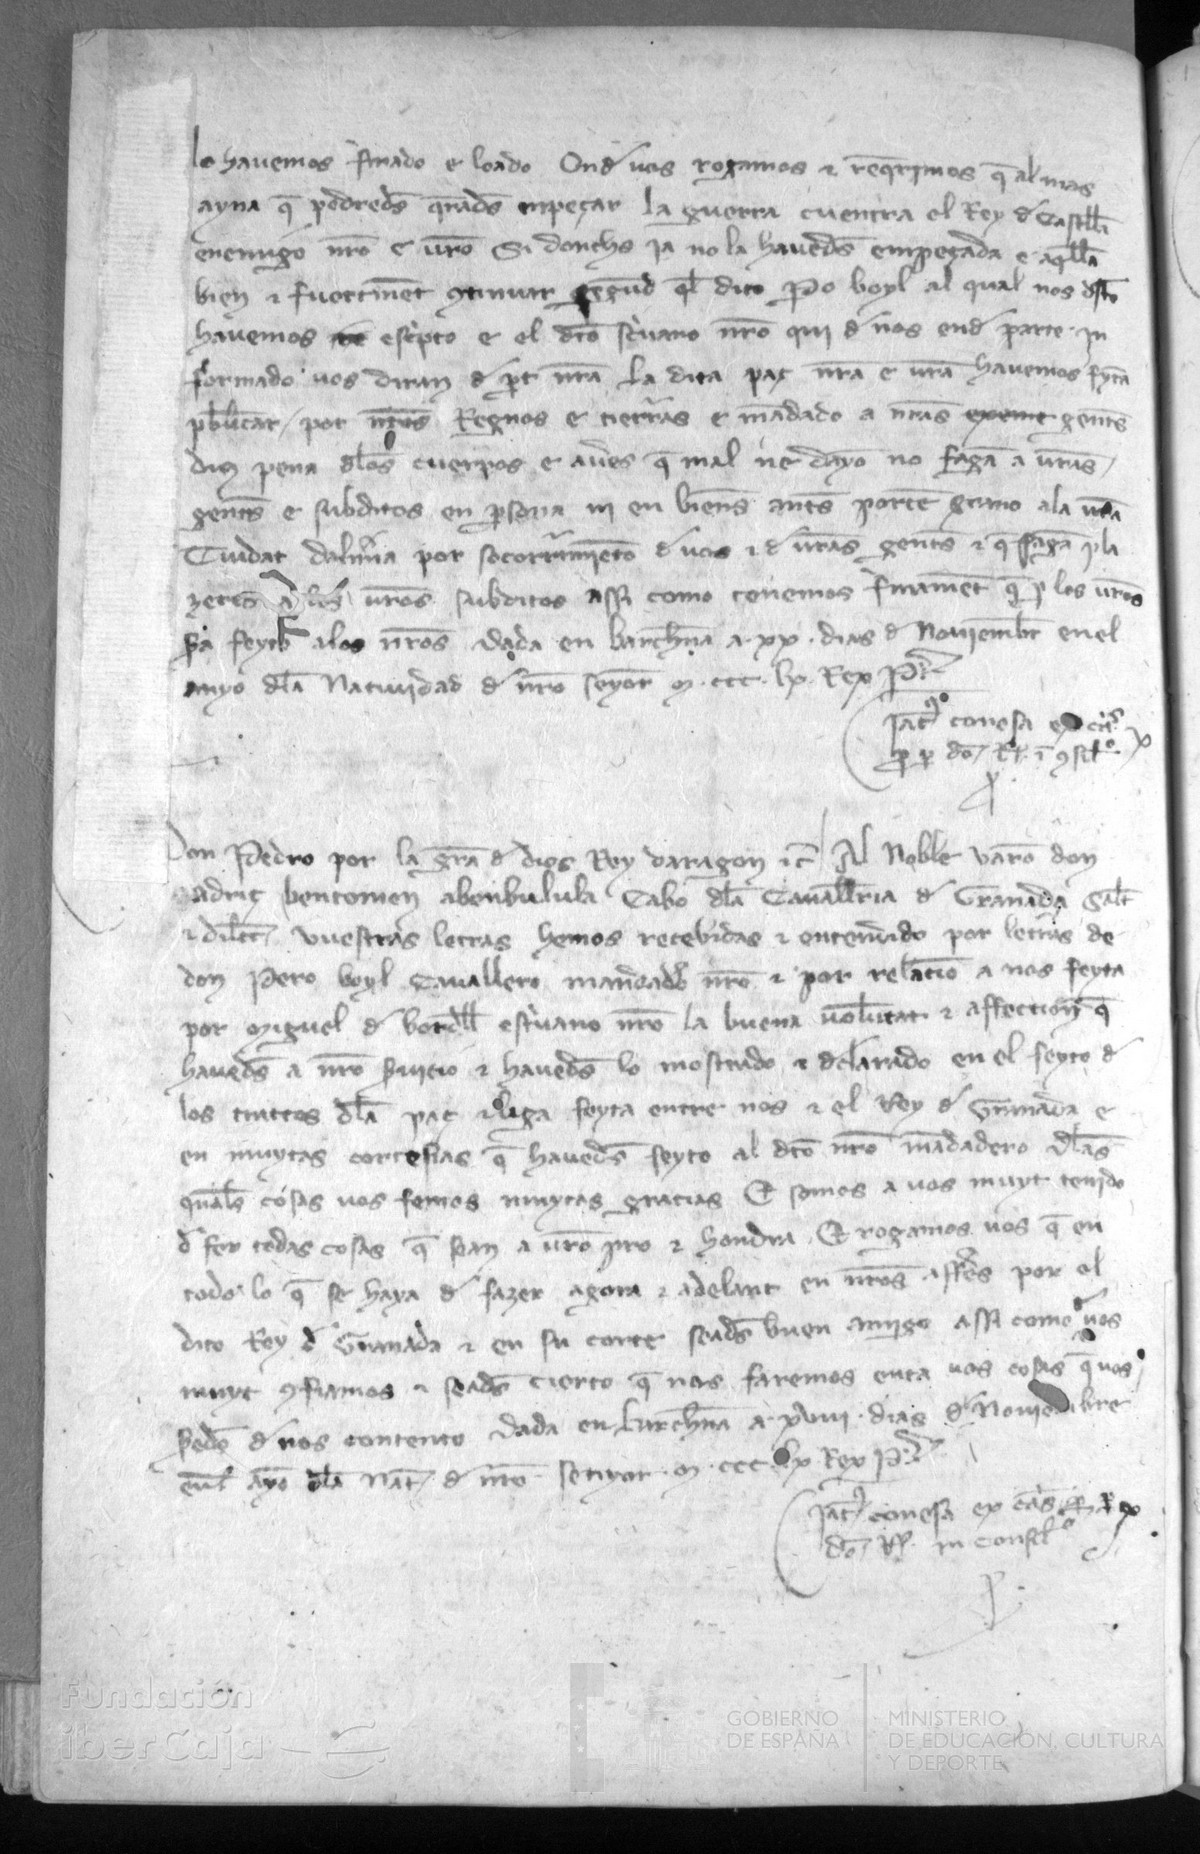 lo hauemos firmado e loado Ond uos rogamos & reqrimos q al mas
ayna q podredes qrades enpeçar la guerra cuentra el Rey d Castella
enemigo nro e uro Si donchs ja no la hauedes empeçada e aqlla
bien & fuertment continuar segund ql dito Po boyl al qual nos dsto
hauemos escripto e el dto scriuano nro qui d nos end parte in
formado uos diran d part nra La dita paç nra e ura hauemos feyta
publicar por nros Regnos e tierras e mandado a nras gentes
dius pena dlos cuerpos e aueres q mal ne danyo no fagan a uras
gentes e subditos en persona ni en bienes antes porten grano ala ura
Ciudat dalmeria por socorrimiento d uos & d uras gentes & q fagan pla
zeres a los uros subditos assi como tenemos firmament q por los uros
sera feyto alos nros Dada en barchna a xx dias d Nouiembr en el
anyo dla Natiuidad d nro senyor M ccc lx Rex P
Jac conesa ex
pr dom R in consil
Don Pedro por la gra d dios Rey daragon etc Al Noble varon don
bentomen abenbulula Cabo dla Cauallria d Granada Salt
& dilec Vuestras letras hemos recebidas & entendido por letras de
don Pero boyl Cauallero mandado nro & por relacio a nos feyta
por Miguel d bordell escriuano nro la buena uoluntat & affection q
hauedes a nro seruicio & hauedes lo mostrado & declarado en el feyto d
los tractos dla paç & liga feyta entre nos & el Rey d Granada e
en muytas cortesias q hauedes feyto al dto nro mandadero Dlas
quals cosas uos femos muytas gracias Et somos a uos muyt tenido
d fer todas cosas q sean a uro pro & hondra Et rogamos uos q en
todo lo q se haya d fazer agora & adelant en nros afferes por el
dito Rey d Granada & en su corte seades buen amigo assi como d uos
muyt confiamos & seades cierto q nos faremos enta uos cosas q uos
seredes d nos contento Dada en barchna a xviii dias d Nouiembre
enel anyo dla Nat d nro senyor M ccc lx Rex P
Jac conesa ex
dom R in consil
Fundación
iberCaja
GOBIERNO
DE ESPAÑA
MINISTERIO
DE EDUCACIÓN, CULTURA
Y DEPORTE